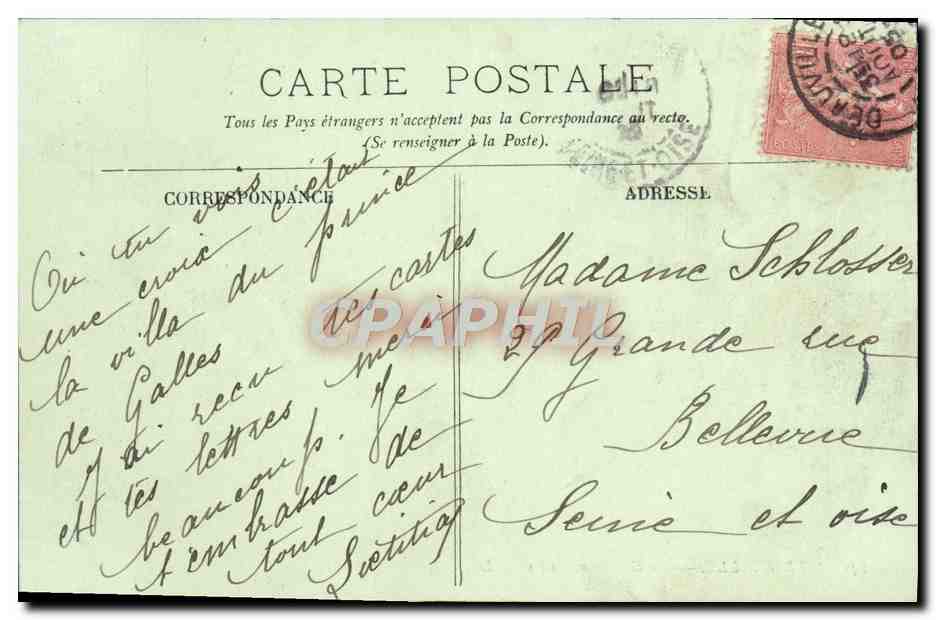 CARTE POSTALE
Tous les Pays étrangers n'acceptent pas la Correspondance au recto.
(Se renseigner à la Poste).
CORRESPONDANCE
Où tu vois
une croix c'était
la villa du prince
de Galles
J'ai recu tes cartes
et tes lettres merci
beaucoup. Je
t'embrasse de
tout cœur
Lœtitia
ADRESSE
Madame Schlosser
29 Grande rue
Bellevue
Seine et oise
DEAUVILLE
SEINE-ET-OISE
CPAPHIL